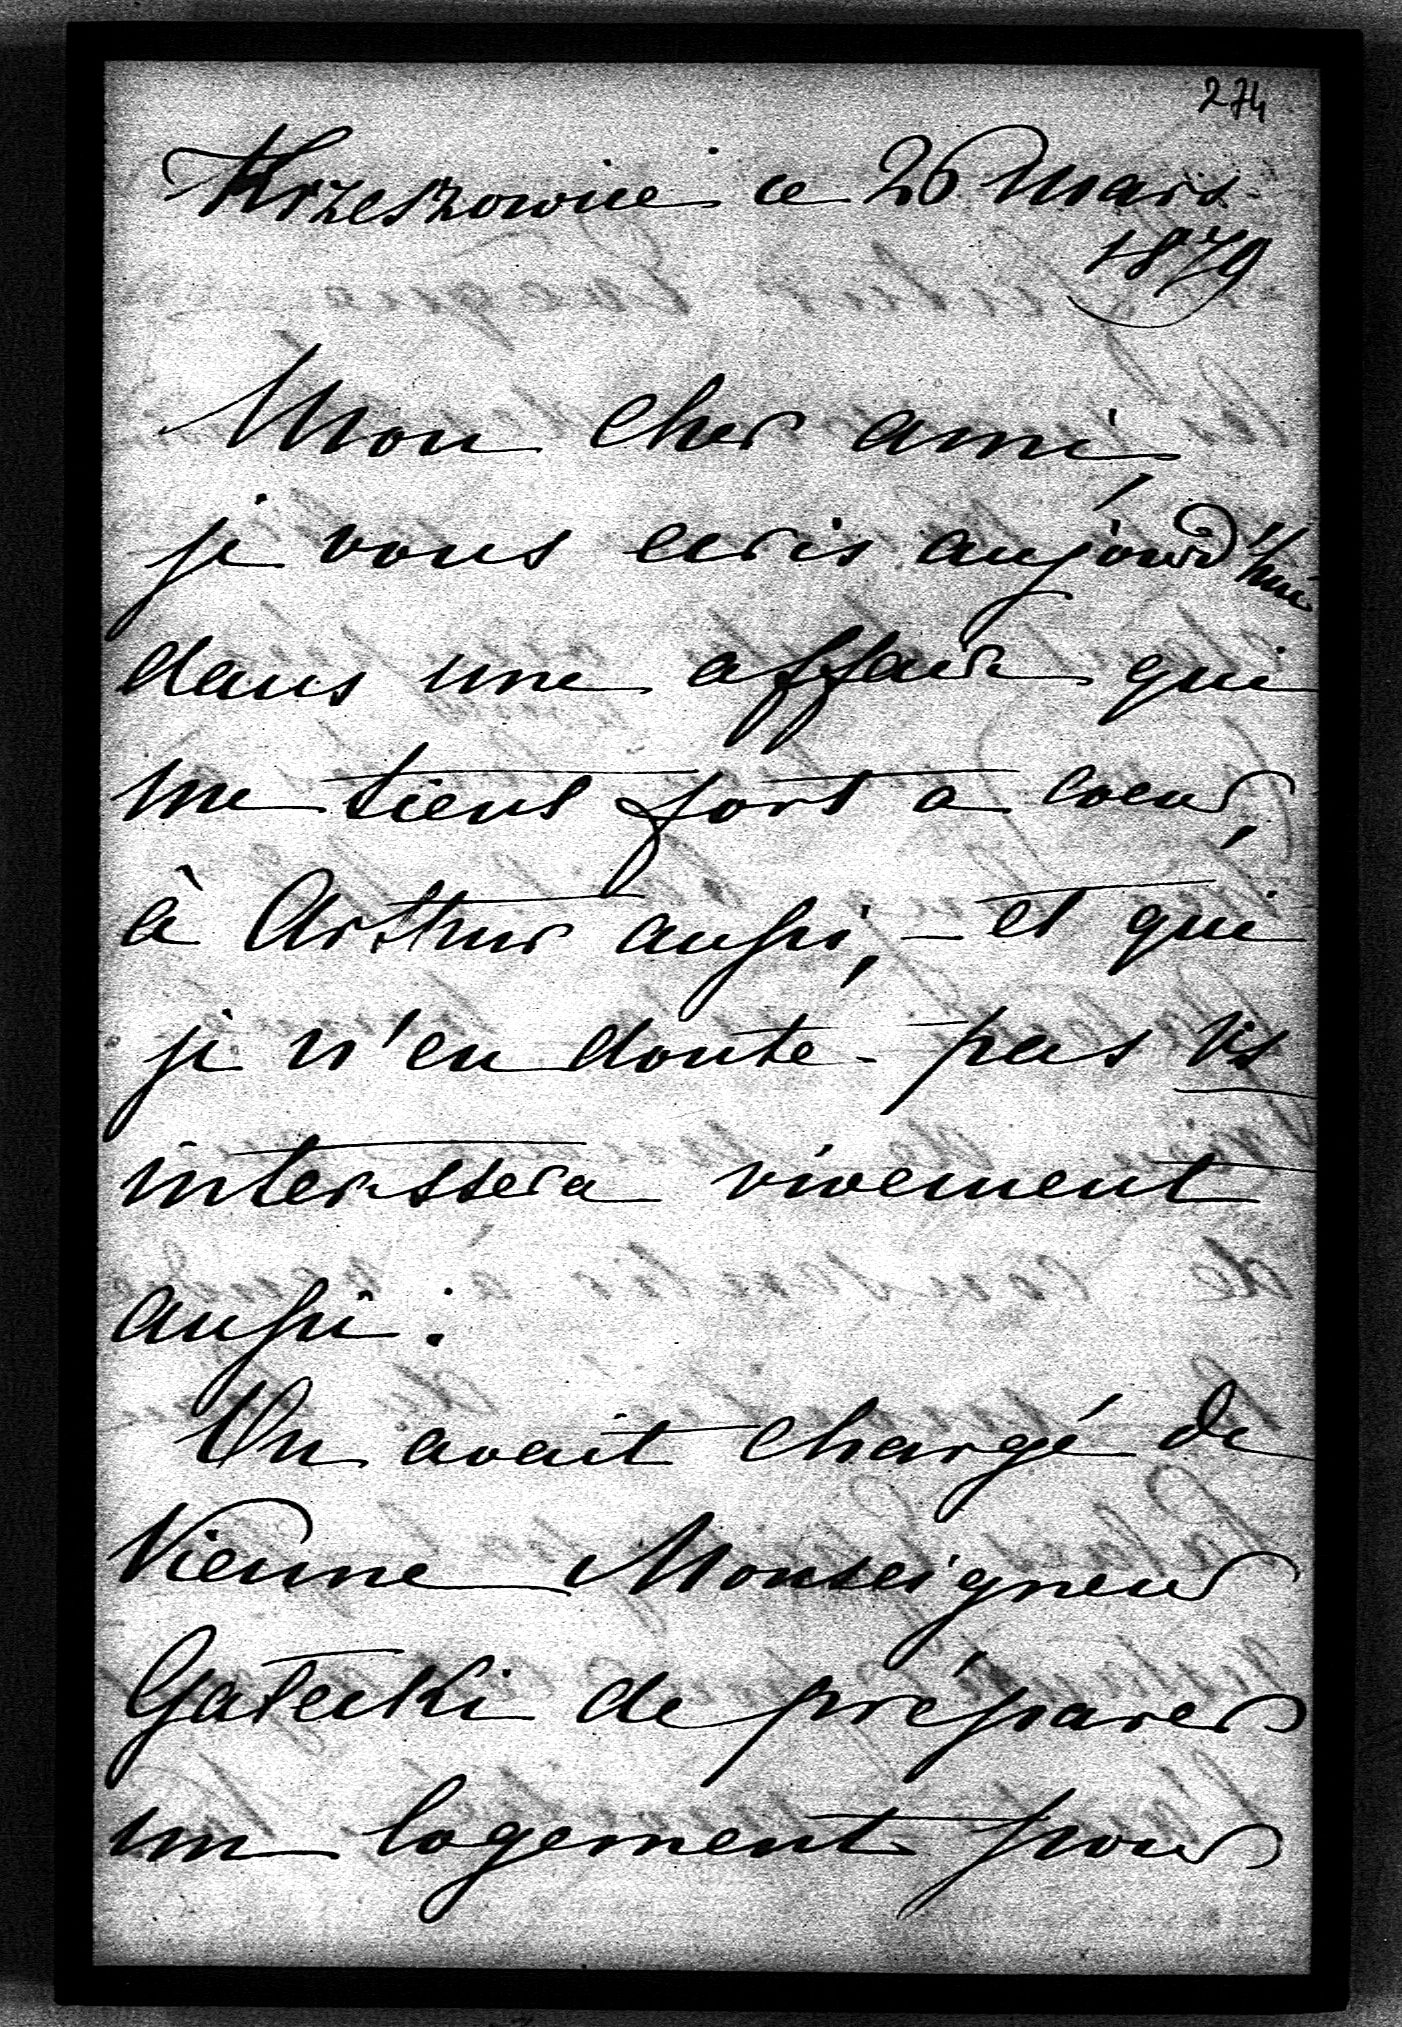 274
Krzeszowice ce 26 Mars
1879
Mon cher ami,
je vous ecris aujourd'hui
dans une affaire qui
me tient fort a coeur,
à Arthur aussi, – et qui
je n'en doute – pas vs
interessera vivement
aussi :
On avait chargé de
Vienne Monseigneur
Gałecki de préparer
un logement pour